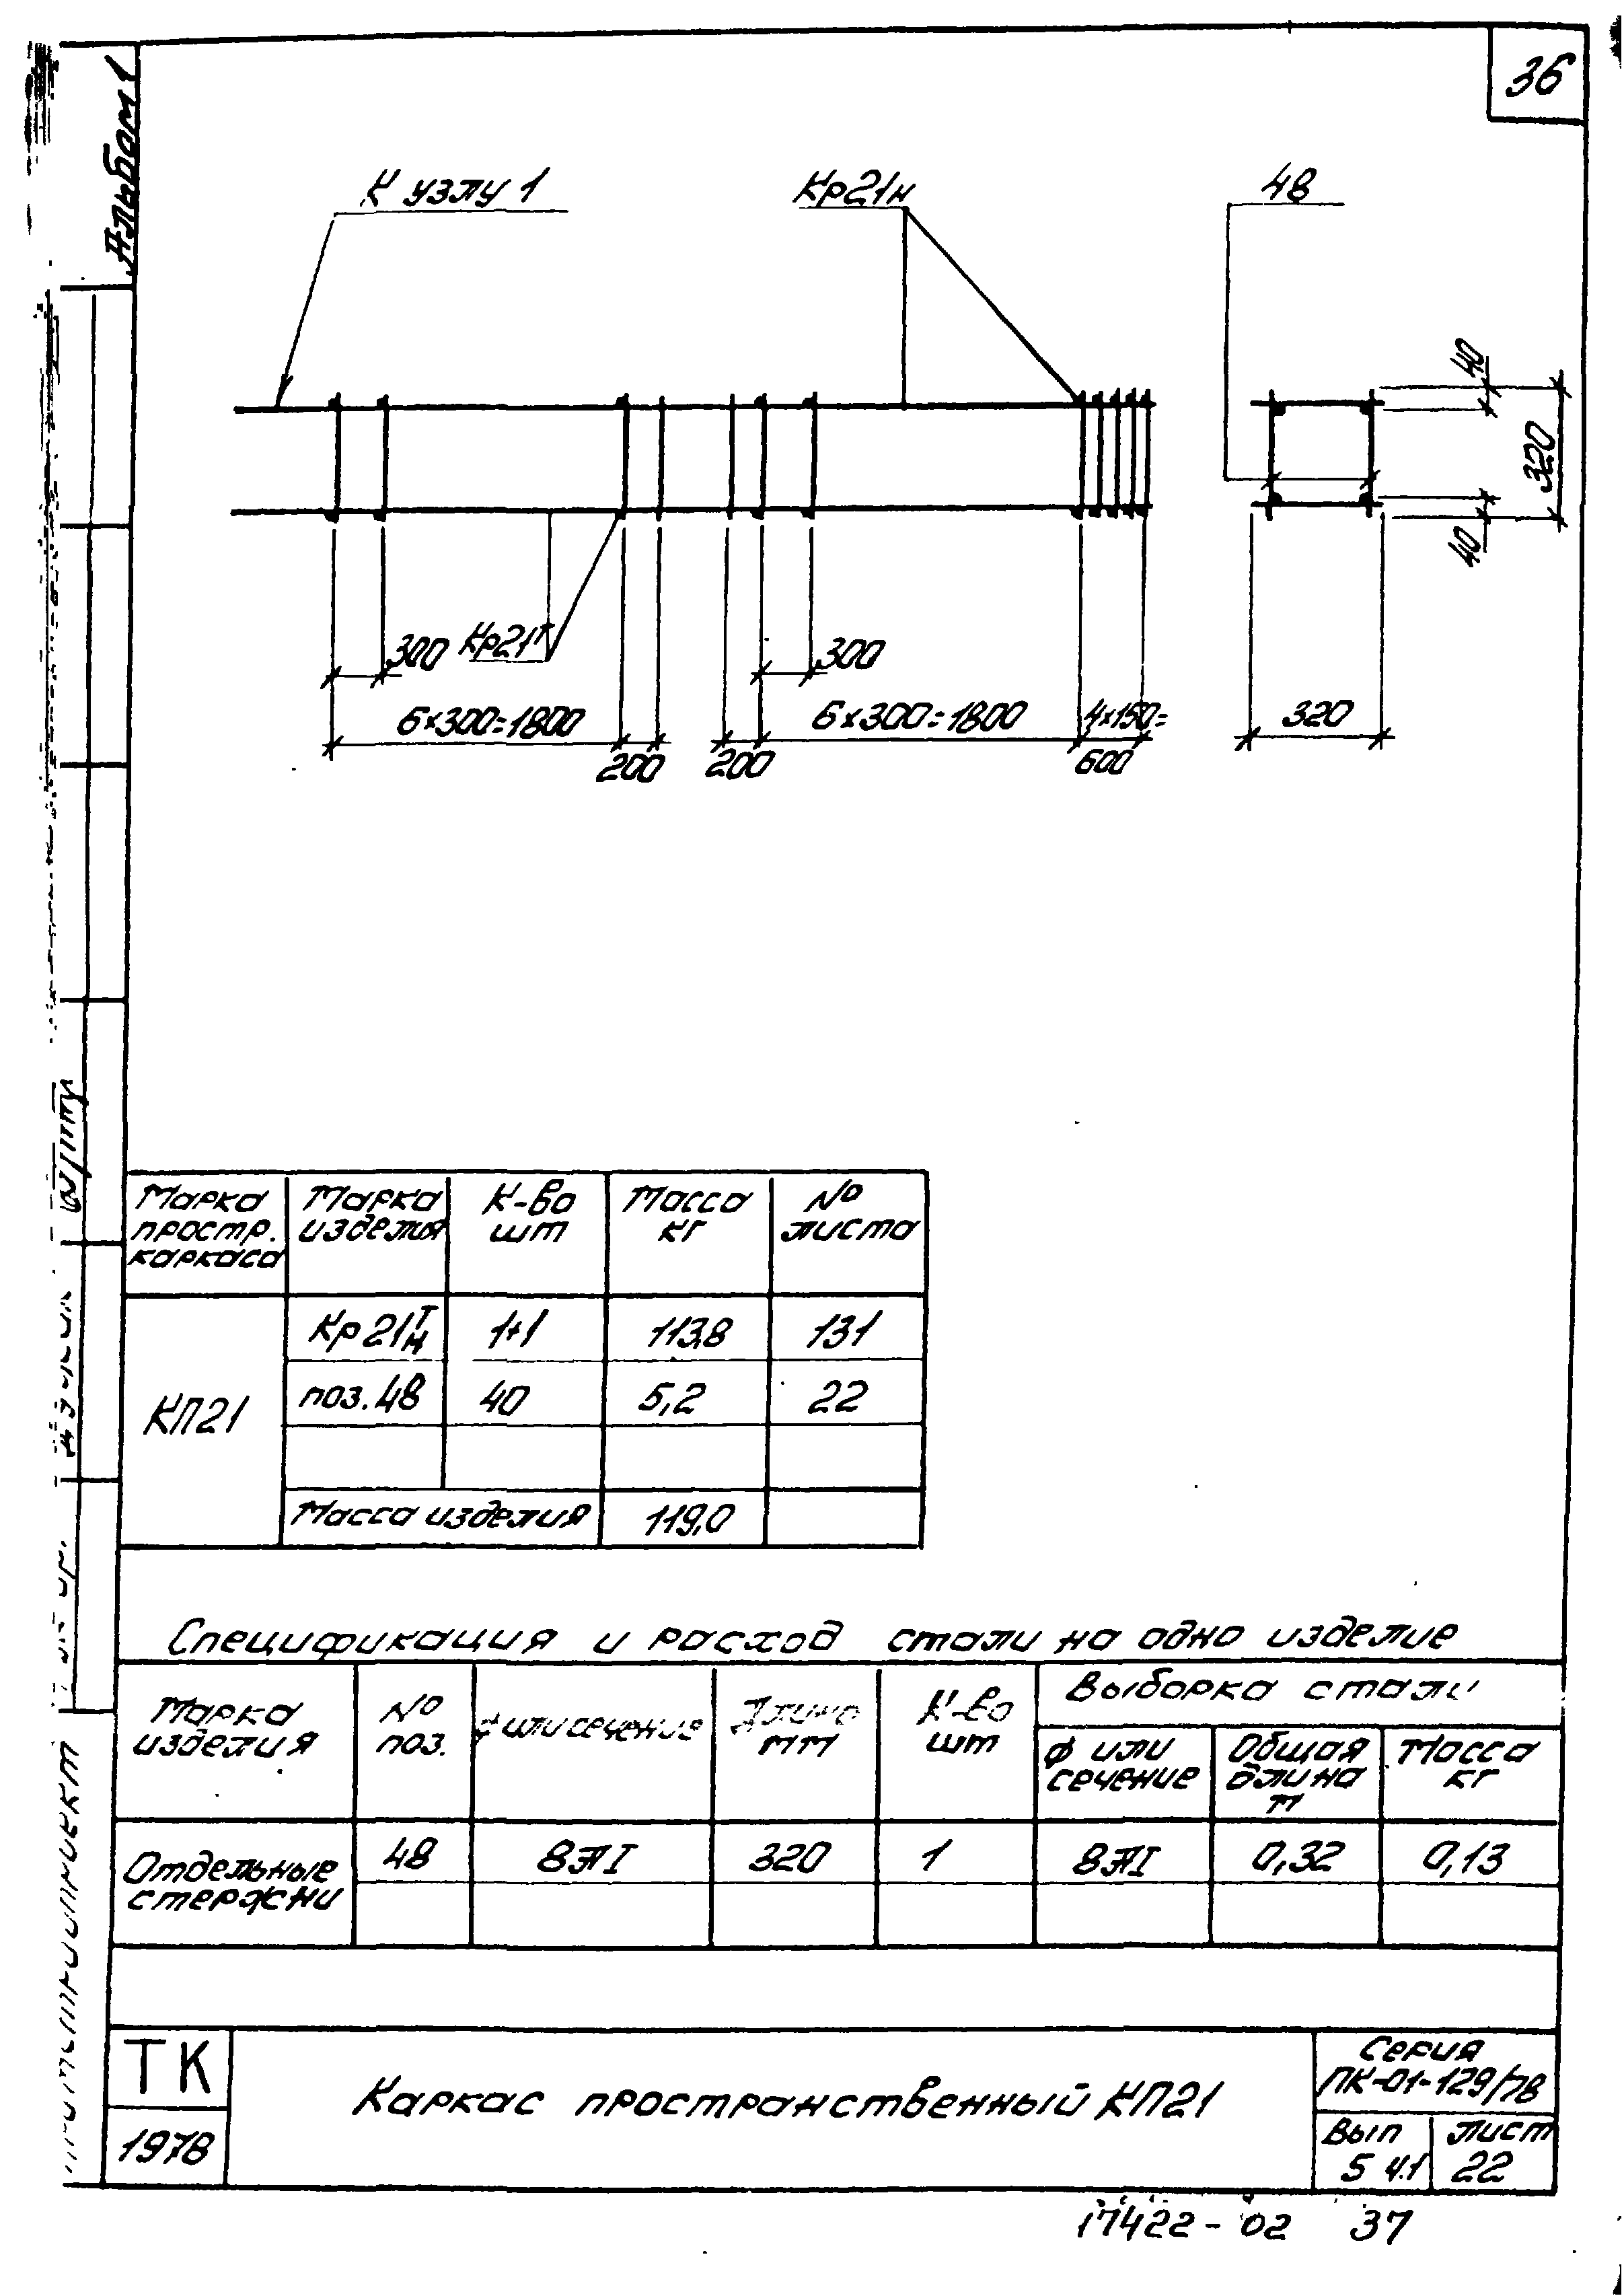 36
Альбом 1
К узлу 1
Кр21н
48
40
320
40
300
Кр21т
300
6×300=1800
6×300=1800
4×150=
600
200
200
320
Марка простр. каркаса
Марка изделия
К-во шт
Масса кг
№ листа
КП21
Кр21 т/н
1+1
113,8
131
поз. 48
40
5,2
22
Масса изделия
119,0
Спецификация и расход стали на одно изделие
Марка изделия
№ поз.
ф или сечение
Длина мм
К-во шт
Выборка стали
ф или сечение
Общая длина м
Масса кг
Отдельные стержни
48
8АI
320
1
8АI
0,32
0,13
ТК
1978
Каркас пространственный КП21
Серия
ПК-01-129/78
Вып
5 ч.1
Лист
22
17422-02 37